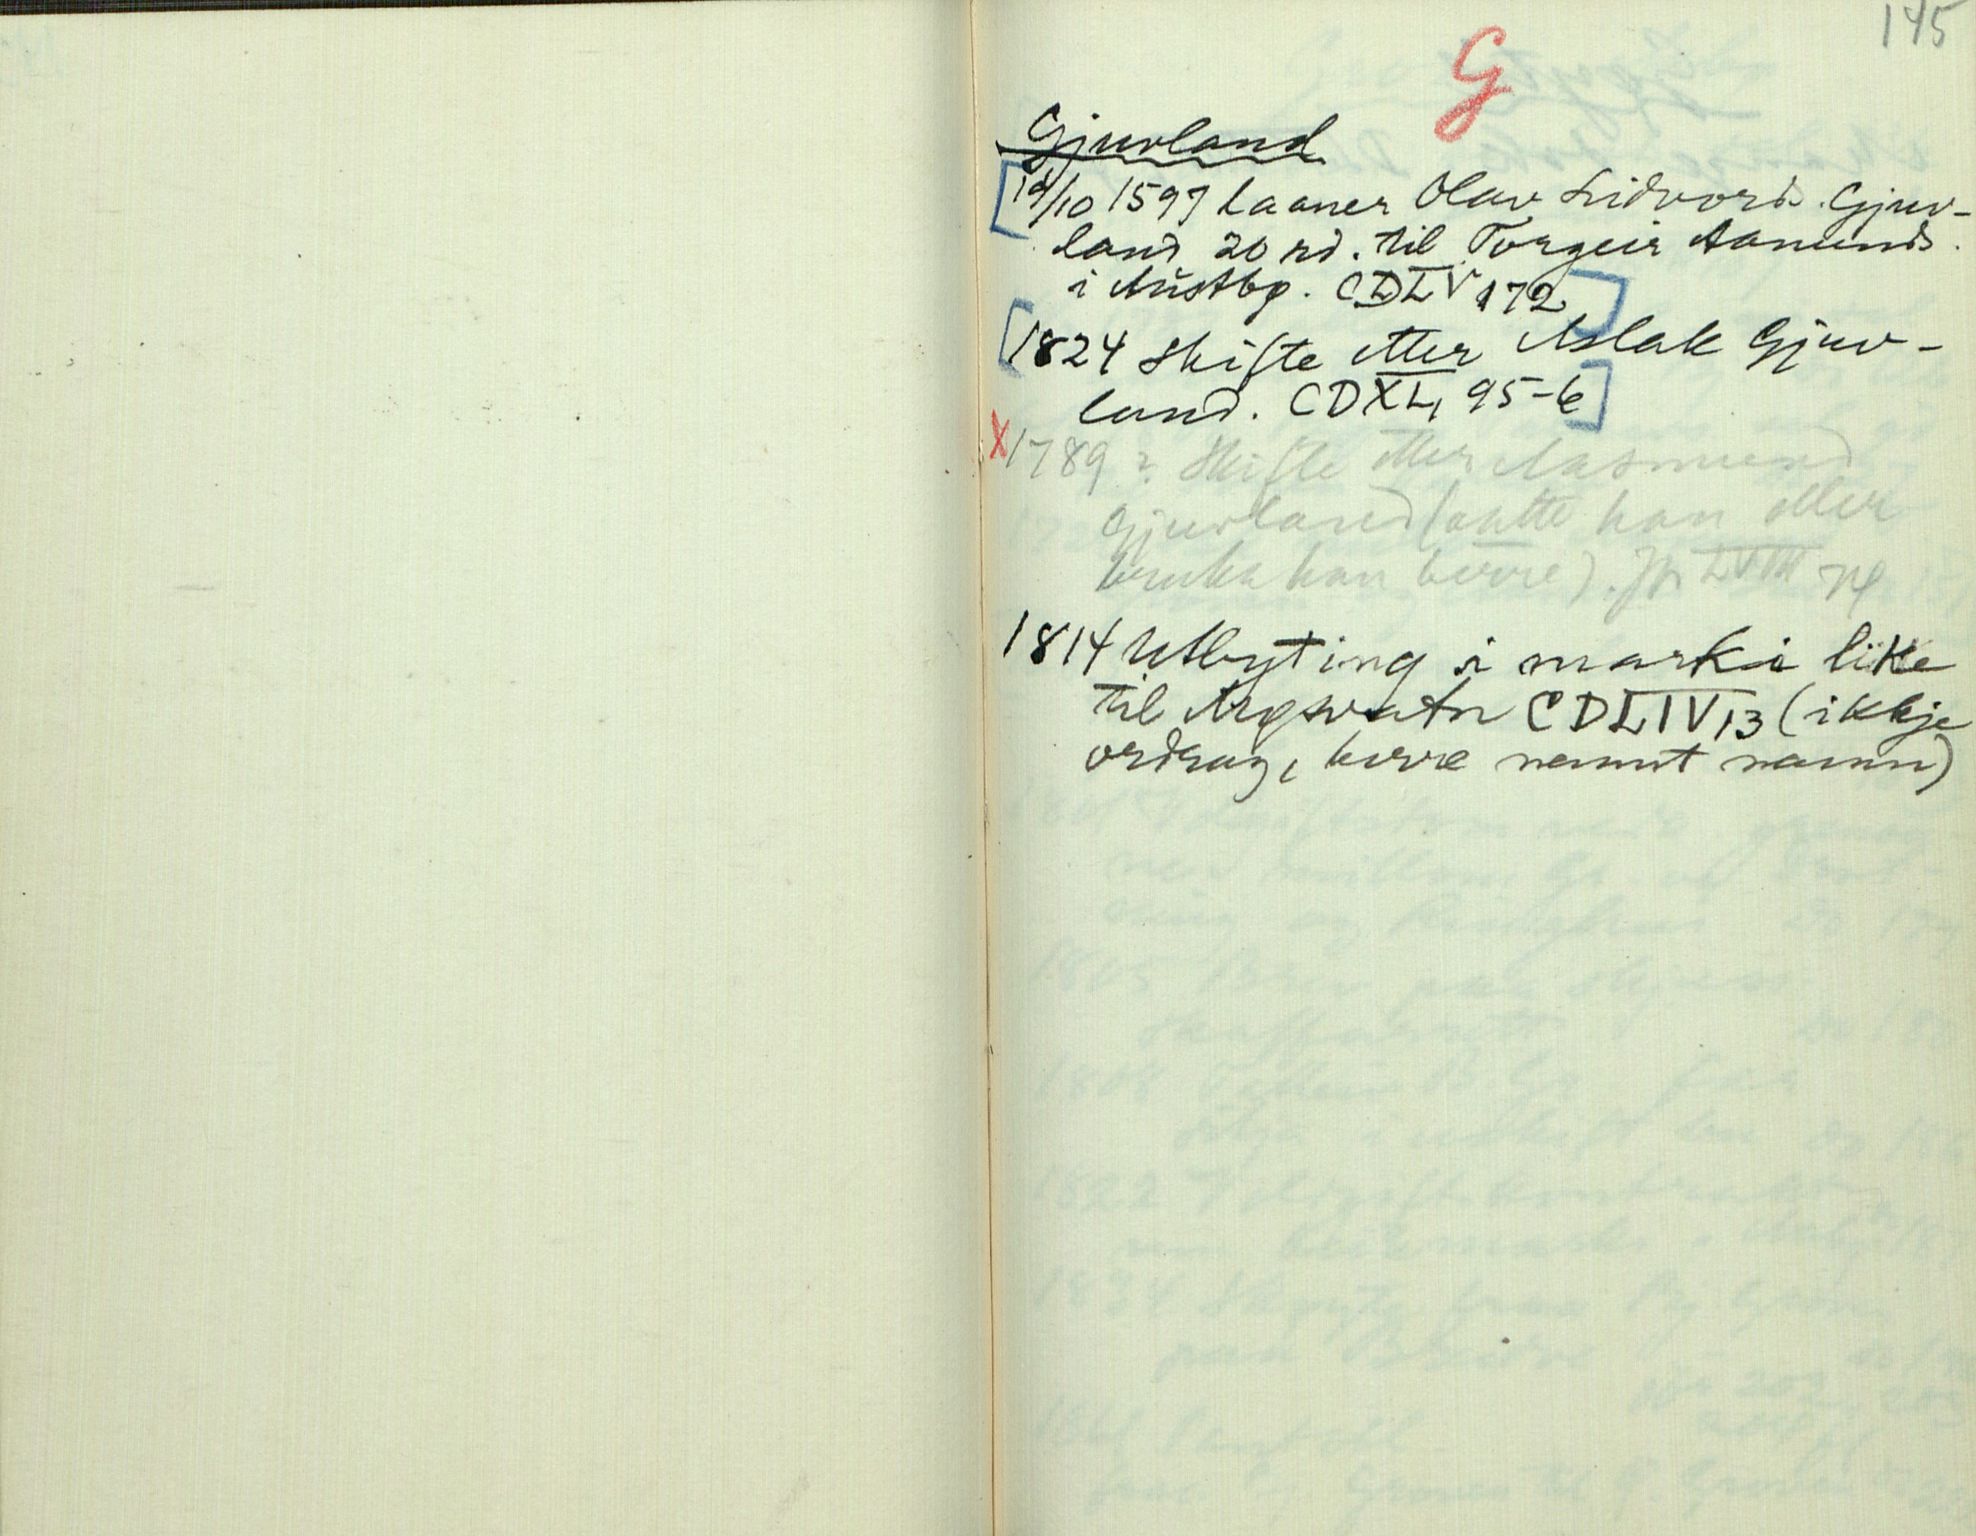 145
G
Gjuvland
19/10 1597 laaner Olav Lidvords. Gjuv-
land 20 rd. til Torgeir Aamunds.
i Austbø. CDLV 172
1824 Skifte etter Aslak Gjuv-
land. CDXL, 95-6
X 1789 ? Skifte etter Aasmund
Gjuvland (aatte han eller
bruka han berre). Jfr LVIII
1814 Utbyting i marki like
til Argevatn CDLIV, 13 (ikkje
ordrag, berre nemnt namn)